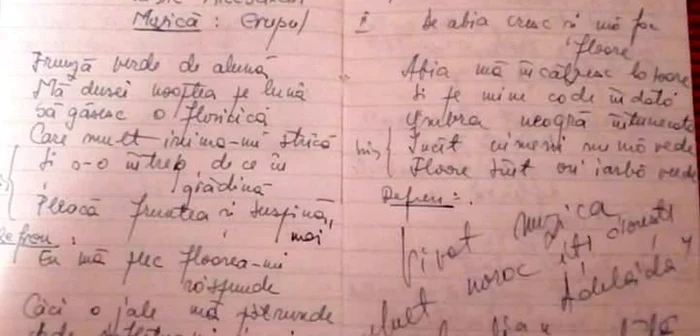 Muzică: Grupul
Frunză verde de alună
Mă dusei noaptea pe lună
Să găsesc o floricică
Care mult inima-mi strică
Și o-o întreb de ce în
grădină
Pleacă fruntea și suspină,
mai
Refren:
Eu mă plec floarea-mi
răspunde
Căci o jale mă pătrunde
II De abia cresc și mă fac
floare
Abia mă încălzesc la soare
Și pe mine cade îndată
Umbra neagră întunecată
bis Încât nimeni nu mă vede
Floare sînt ori iarbă verde
Refren:.
Vivat muzica
Mult noroc îți dorește
Adelaida